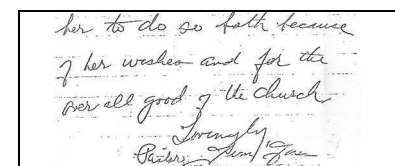 her to do so both because
of her wishes and for the
over all good of the church
Lovingly
Pastor Jim